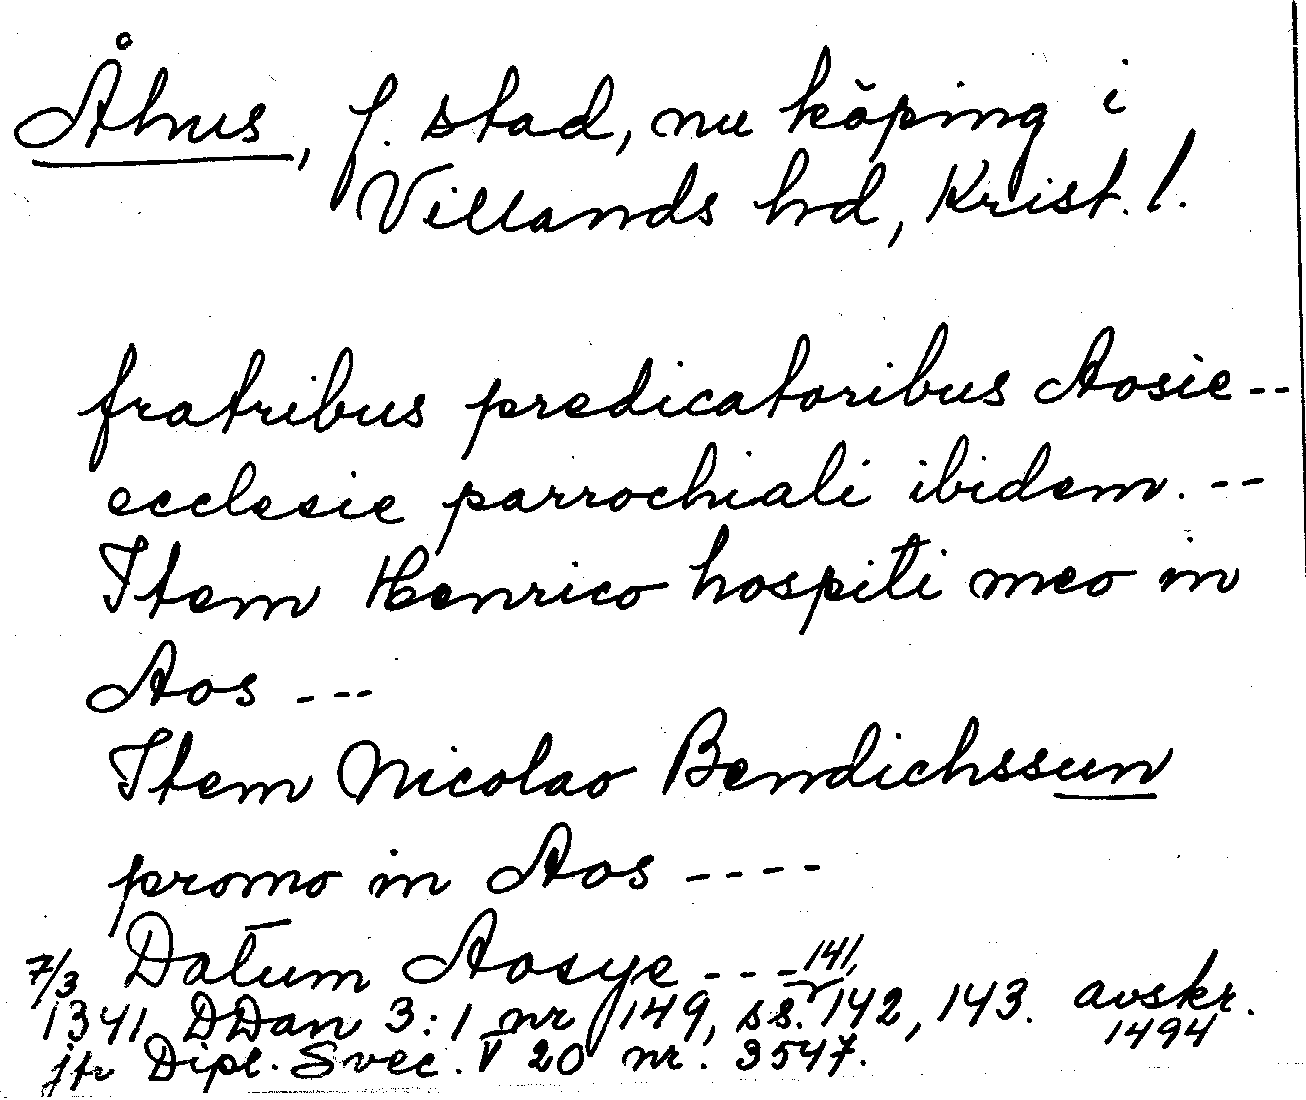 Åhus, f. stad, nu köping i
Villands hd, Krist. l.
fratribus predicatoribus Aosie--
ecclesie parrochiali ibidem. --
Item Henrico hospiti meo in
Aos ---
Item Nicolao Bendichssun
promo in Aos ----
Datum Aosye ---
7/3 1341 DDan 3:1 nr 149, ss. 141, 142, 143. avskr. 1494
jfr Dipl. Svec. V 20 nr. 3547.